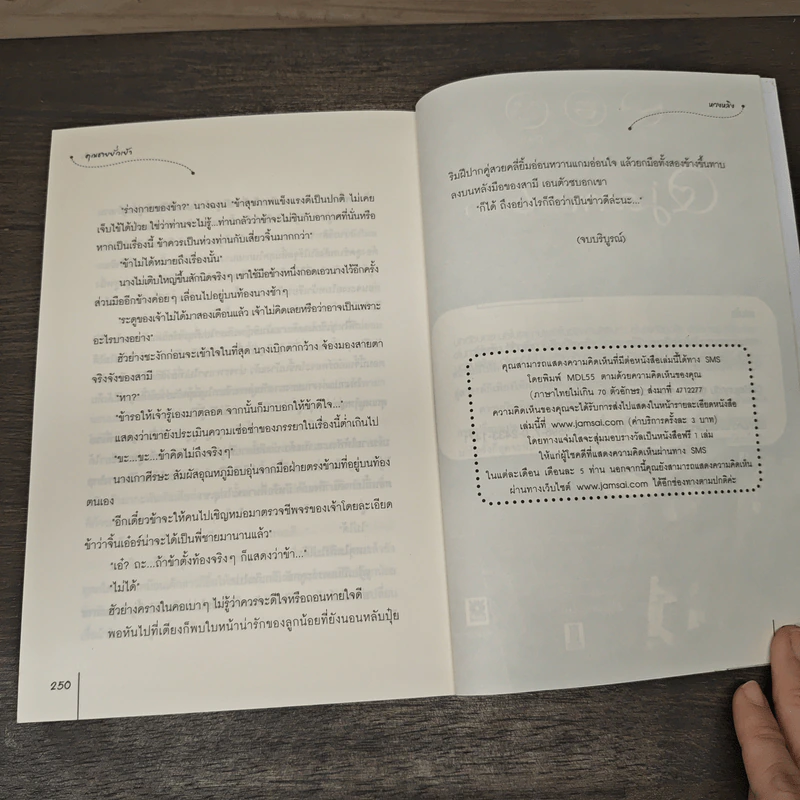 คุณชายยั่วเย้า
"ร่างกายของข้า?" นางฉงน "ข้าสุขภาพแข็งแรงดีเป็นปกติ ไม่เคย
เจ็บไข้ได้ป่วย ใช่ว่าท่านจะไม่รู้...ท่านกลัวว่าข้าจะไม่ชินกับอากาศที่นั่นหรือ
หากเป็นเรื่องนี้ ข้าควรเป็นห่วงท่านกับเสี่ยวจิ้นมากกว่า"
"ข้าไม่ได้หมายถึงเรื่องนั้น"
นางไม่เติบใหญ่ขึ้นสักนิดจริงๆ เขาใช้มือข้างหนึ่งกอดเอวนางไว้อีกครั้ง
ส่วนมืออีกข้างค่อยๆ เลื่อนไปอยู่บนท้องนางช้าๆ
"ระดูของเจ้าไม่ได้มาสองเดือนแล้ว เจ้าไม่คิดเลยหรือว่าอาจเป็นเพราะ
อะไรบางอย่าง"
ฮัวย่างชะงักก่อนจะเข้าใจในที่สุด นางเบิกตากว้าง จ้องมองสายตา
จริงจังของสามี
"หา?"
"ข้ารอให้เจ้ารู้เองมาตลอด จากนั้นก็มาบอกให้ข้าดีใจ..."
แสดงว่าเขายังประเมินความเซ่อซ่าของภรรยาในเรื่องนี้ต่ำเกินไป
"ขะ...ขะ...ข้าคิดไม่ถึงจริงๆ"
นางเกาศีรษะ สัมผัสอุณหภูมิอบอุ่นจากมือฝ่ายตรงข้ามที่อยู่บนท้อง
ตนเอง
"อีกเดี๋ยวข้าจะให้คนไปเชิญหมอมาตรวจชีพจรของเจ้าโดยละเอียด
ข้าว่าจิ้นเอ๋อร์น่าจะได้เป็นพี่ชายมานานแล้ว"
"เอ๋? ถะ...ถ้าข้าตั้งท้องจริงๆ ก็แสดงว่าข้า..."
"ไม่ได้"
ฮัวย่างครางในคอเบาๆ ไม่รู้ว่าควรจะดีใจหรือถอนหายใจดี
พอหันไปที่เตียงก็พบใบหน้าน่ารักของลูกน้อยที่ยังนอนหลับปุ๋ย
250
หวานหลิง
ริมฝีปากคู่สวยคลี่ยิ้มอ่อนหวานแกมอ่อนใจ แล้วยกมือทั้งสองข้างขึ้นทาบ
ลงบนหลังมือของสามี เอนตัวซบอกเขา
"ก็ได้ ถึงอย่างไรก็ถือว่าเป็นข่าวดีล่ะนะ..."
(จบบริบูรณ์)
คุณสามารถแสดงความคิดเห็นที่มีต่อหนังสือเล่มนี้ได้ทาง SMS
โดยพิมพ์ MDL55 ตามด้วยความคิดเห็นของคุณ
(ภาษาไทยไม่เกิน 70 ตัวอักษร) ส่งมาที่ 4712277
ความคิดเห็นของคุณจะได้รับการส่งไปแสดงในหน้ารายละเอียดหนังสือ
เล่มนี้ที่ www.jamsai.com (ค่าบริการครั้งละ 3 บาท)
โดยทางแจ่มใสจะสุ่มมอบรางวัลเป็นหนังสือฟรี 1 เล่ม
ให้แก่ผู้โชคดีที่แสดงความคิดเห็นผ่านทาง SMS
ในแต่ละเดือน เดือนละ 5 ท่าน นอกจากนี้คุณยังสามารถแสดงความคิดเห็น
ผ่านทางเว็บไซต์ www.jamsai.com ได้อีกช่องทางตามปกติค่ะ